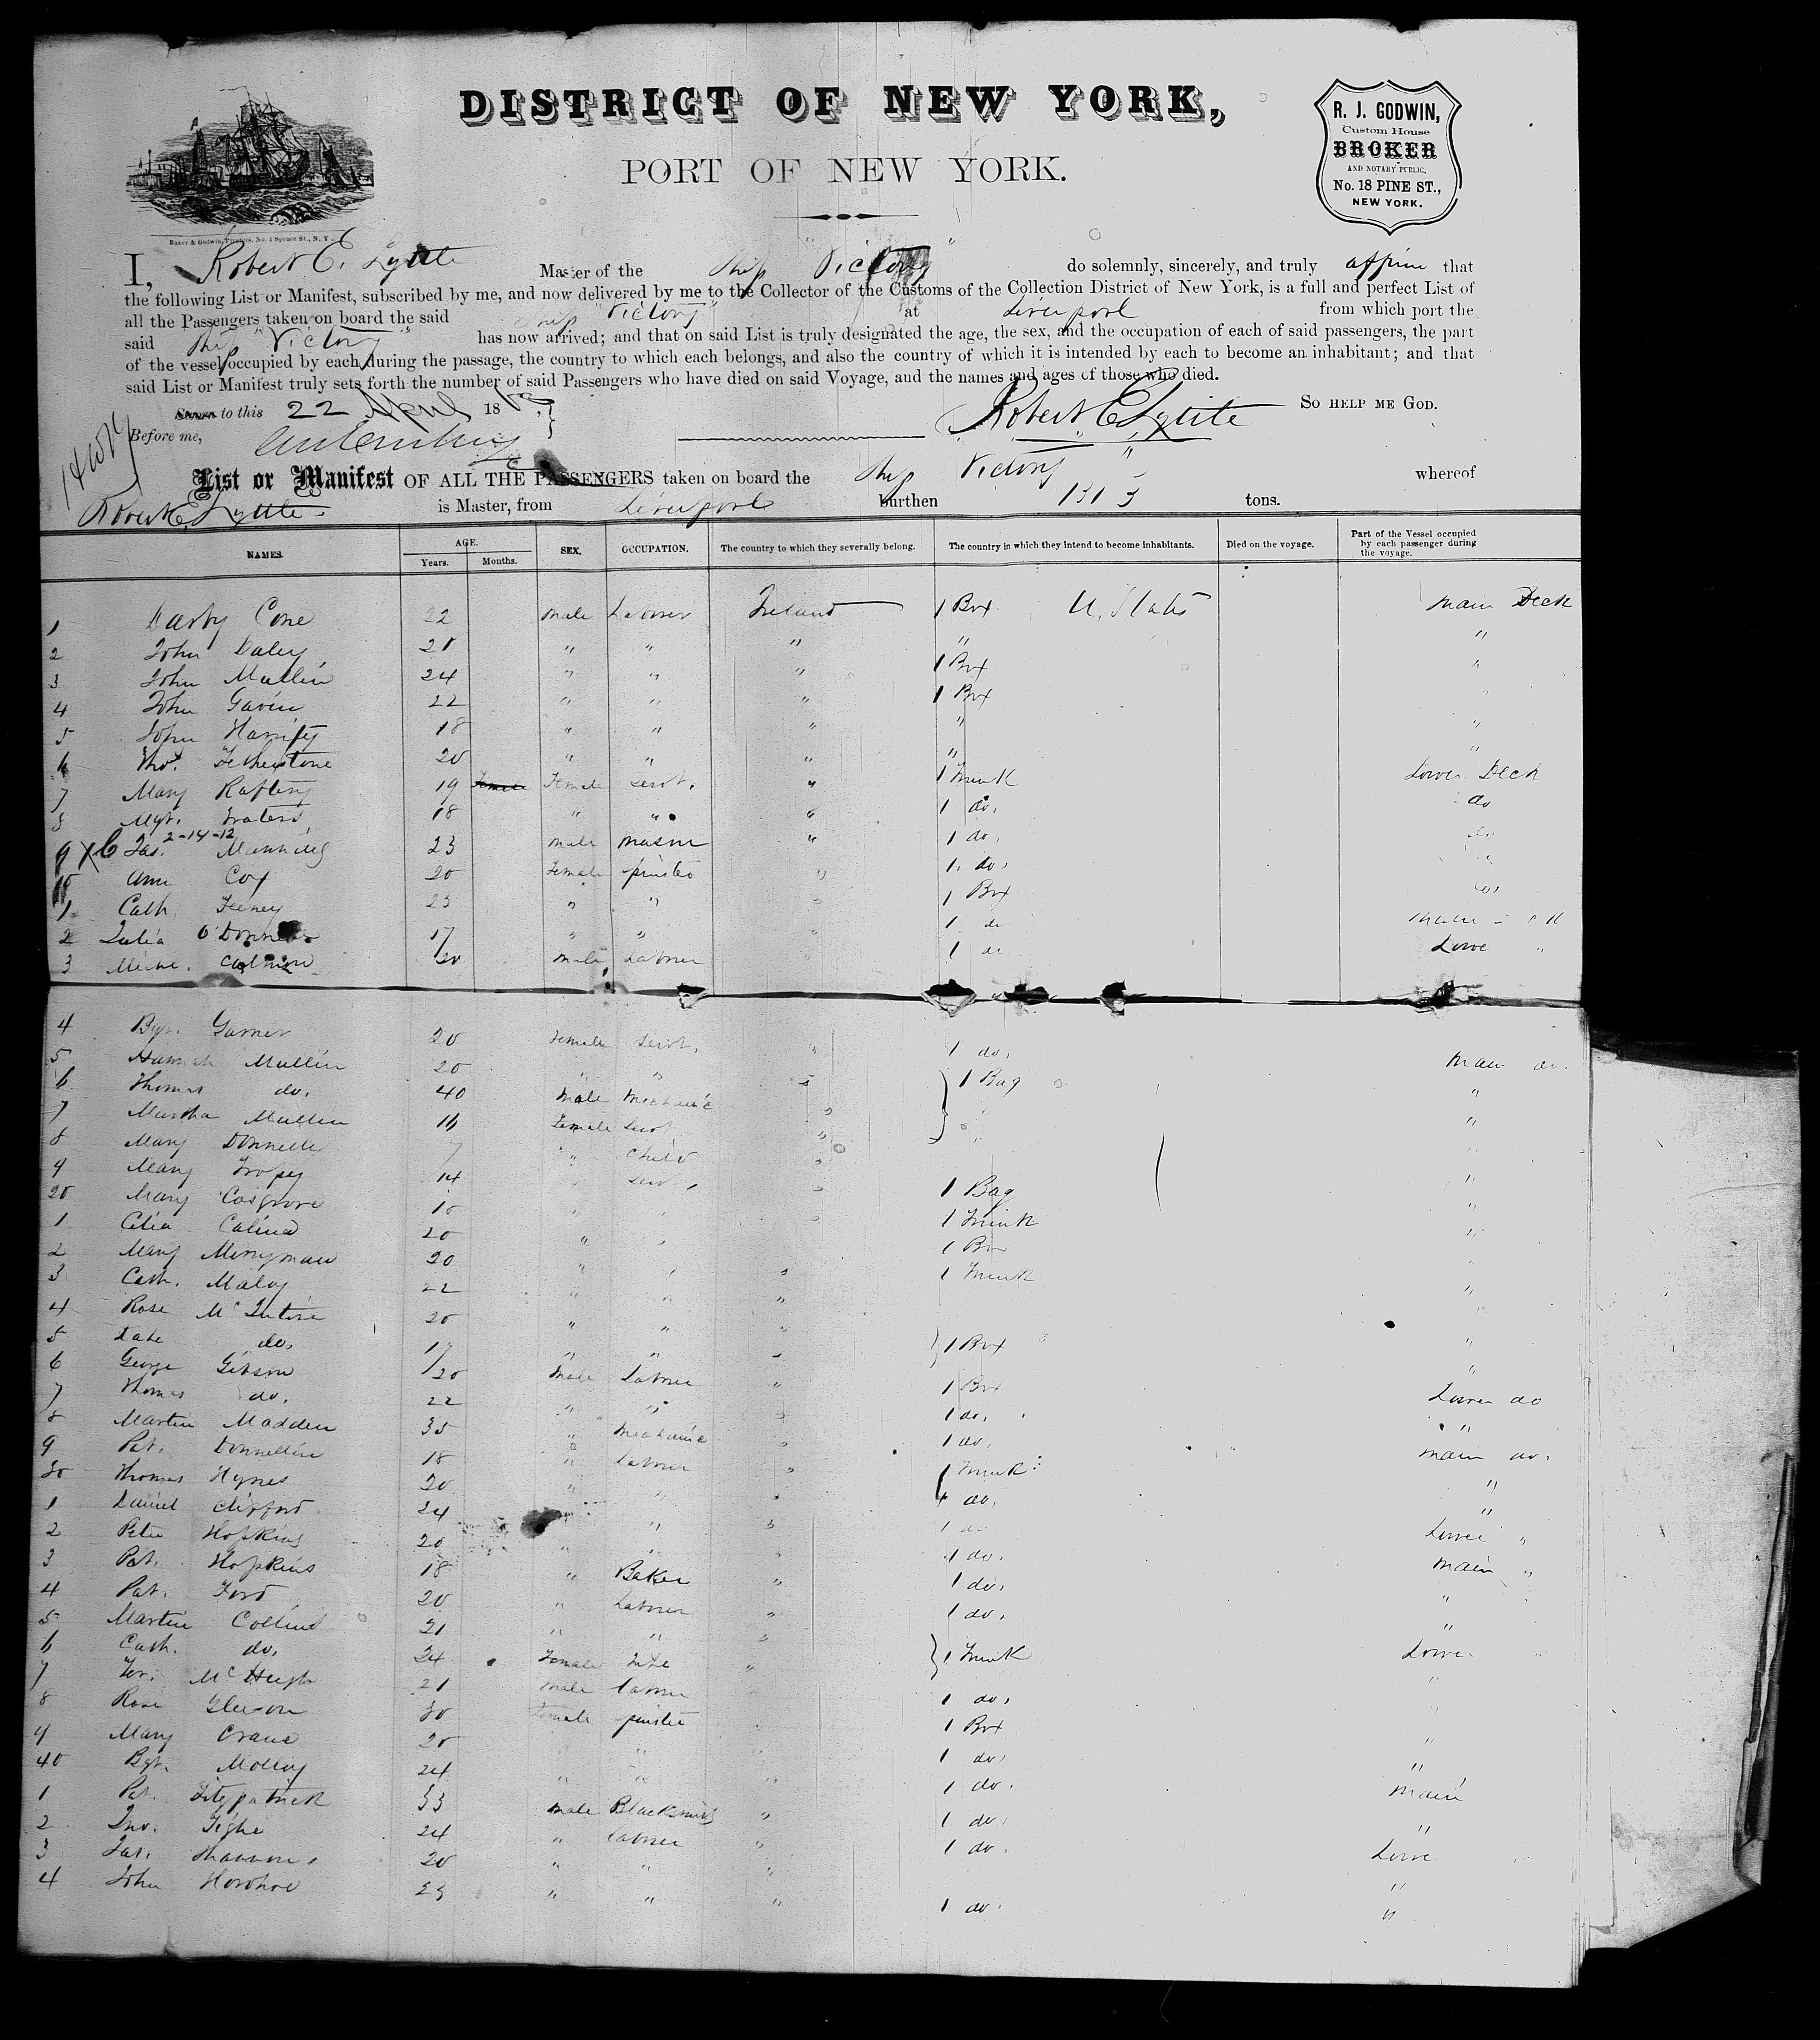 DISTRICT OF NEW YORK,
PORT OF NEW YORK.
R. J. GODWIN,
Custom House
BROKER
AND NOTARY PUBLIC,
No. 18 PINE ST.,
NEW YORK.
Baker & Godwin, Printers, No. 1 Spruce St., N. Y.
I, Robert E. Lytle Master of the Ship "Victory" do solemnly, sincerely, and truly affirm that
the following List or Manifest, subscribed by me, and now delivered by me to the Collector of the Customs of the Collection District of New York, is a full and perfect List of
all the Passengers taken on board the said Ship "Victory" at Liverpool from which port the
said Ship "Victory" has now arrived; and that on said List is truly designated the age, the sex, and the occupation of each of said passengers, the part
of the vessel occupied by each during the passage, the country to which each belongs, and also the country of which it is intended by each to become an inhabitant; and that
said List or Manifest truly sets forth the number of said Passengers who have died on said Voyage, and the names and ages of those who died.
to this 22 April 18
SO HELP ME GOD.
Robert E Lytle
Before me,
List or Manifest OF ALL THE PASSENGERS taken on board the Ship Victory whereof
Robert E Lytle is Master, from Liverpool burthen 1313 tons.
NAMES. AGE. Years. Months. SEX. OCCUPATION. The country to which they severally belong. The country in which they intend to become inhabitants. Died on the voyage. Part of the Vessel occupied by each passenger during the voyage.
1 Darby Cone 22 male Laborer Ireland 1 Box U. States Main Deck
2 John Daley 20 " " " " "
3 John Mullin 24 " " " 1 Box "
4 John Gavin 22 " " " 1 Box "
5 John Harrity 18 " " " " "
6 Thos. Fetherstone 20 " " " " "
7 Mary Raftery 19 Female Servt. " 1 Trunk Lower Deck
8 Mgt. 18 " " " 1 do. do
9 X C 2-14-12 Jas. Manning 23 male mason " 1 do. do
10 Ann Coy 20 Female spinster " 1 do.
1 Cath. Feeney 23 " " " 1 Box do
2 Julia O'Donnell 17 " " " 1 do main
3 Miche. 20 male Laborer 1 do Lower "
4 Bgt. Garner 20 Female Servt. " 1 do. Main do.
5 Hannah Mullin 20 " " " 1 Bag "
6 Thomas do. 40 Male Mechanic "
7 Martha Mullen 16 Female Servt "
8 Mary Donnelly 7 " Child "
9 Mary 14 Servt. " 1 Bag "
20 Mary Cosgrove 18 " 1 Trunk "
1 Celia 20 " " 1 Box "
2 Mary Merryman 20 " " " 1 Trunk "
3 Cath. Maloy 22 " " " "
4 Rose McIntire 20 " " " 1 Box "
5 Kate do. 17 " " " "
6 George Gibson 20 Male Laborer " 1 Box Lower do
7 Thomas do. 22 " " " 1 do. "
8 Martin Madden 35 " Mechanic " 1 do. main do.
9 Pat. Donnellin 18 " laborer " 1 Trunk "
30 Thomas Hynes 20 " " " 1 do. "
1 Daniel Clifford 24 " " 1 do Lower "
2 Peter Hopkins 20 " " " 1 do. Main "
3 Pat. Hopkins 18 " Baker " 1 do. "
4 Pat. Ford 20 " Laborer " 1 do. "
5 Martin Collins 21 " " " 1 Trunk Lower "
6 Cath. do. 24 Female wife " "
7 Ter. McHugh 21 male laborer 1 do. "
8 Rose Gleeson 30 Female spinster 1 Box "
9 Mary Crane 20 " 1 do. "
40 Bgt. Molloy 24 " " " 1 do. Main
1 Pat. Fitzpatrick 33 male Blacksmith " 1 do. "
2 Jno. Tighe 24 " laborer " 1 do. Lower
3 Jas. 20 " " " "
4 John 23 " " " 1 do. "